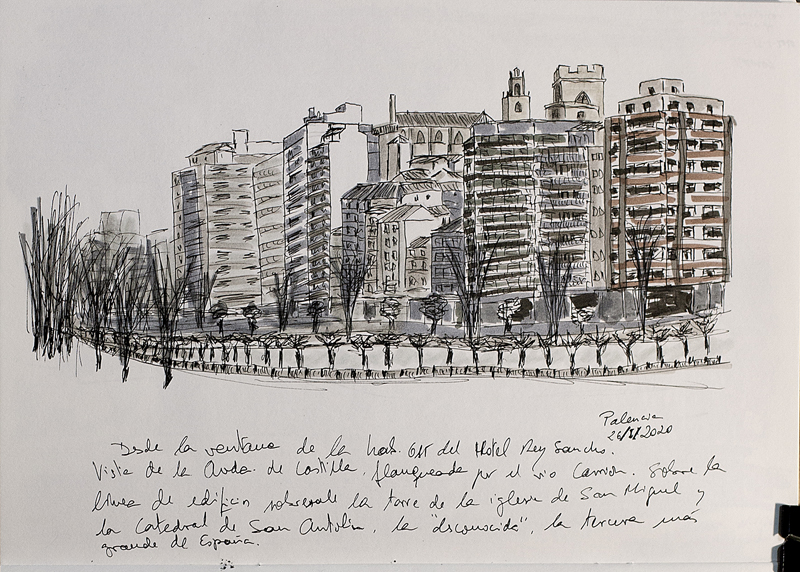 Palencia
26/I/2020
Desde la ventana de la hab. 615 del Hotel Rey Sancho.
Vista de la Avda. de Castilla, flanqueada por el río Carrión. Sobre la
línea de edificios sobresale la torre de la iglesia de San Miguel y
la Catedral de San Antolín, la "desconocida", la tercera más
grande de España.